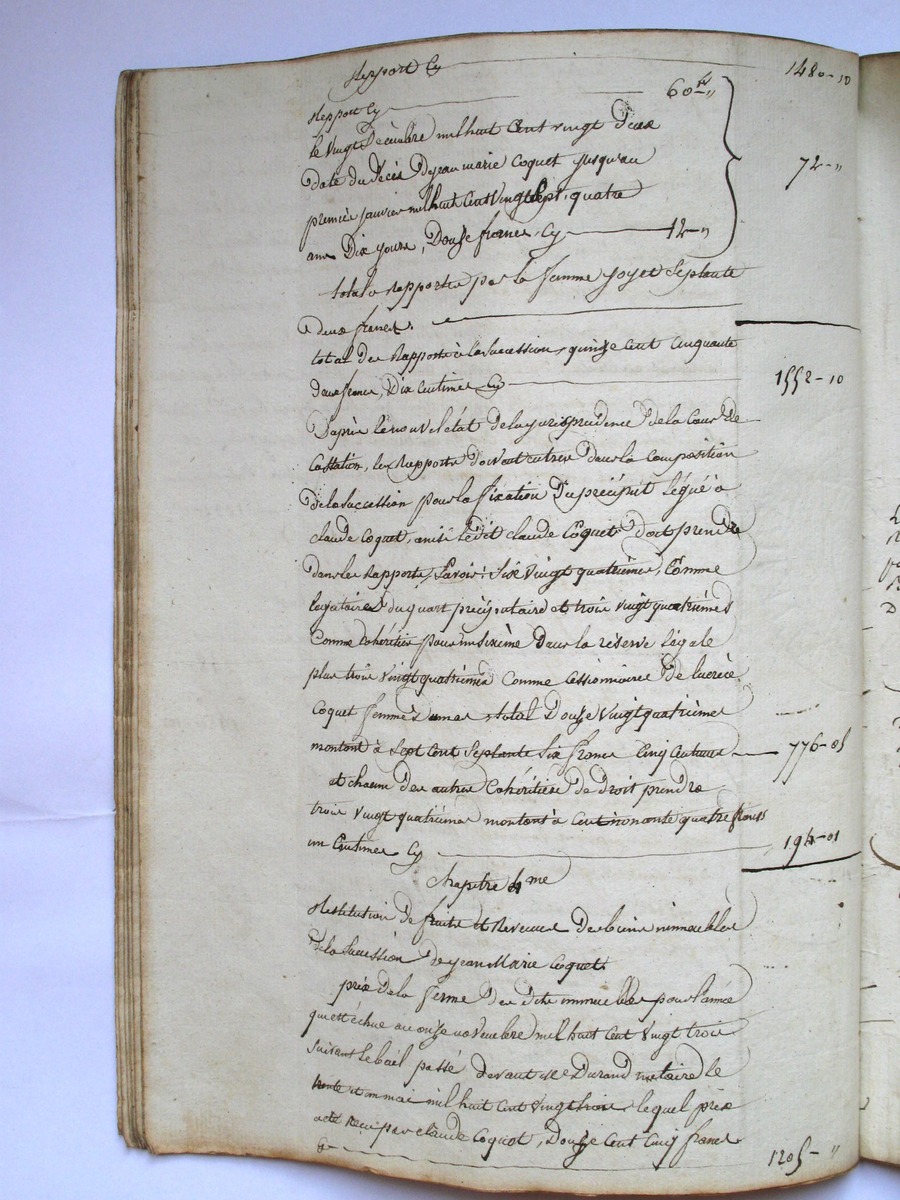 Report Cy 1480-10
Report Cy 60 f "
le vingt Décembre mil huit Cent vingt deux
date du Décès de jean marie Coquet jusqu'au 72-"
premier janvier mil huit Cent Vingt Sept, quatre
ans Dix jours, Douze francs, Cy 12-"
total a rapporter par la femme joyet Septante
deux francs.
total des Rapports à la Succession, quinze Cent Cinquante
deux francs, Dix Centimes Cy 1552-10
D'après le nouvel état de la jurisprudence de la Cour de
Cassation, les Rapports doivent entrer dans la Composition
de la Succession pour la fixation du préciput légué à
claude Coquet, ainsi ledit claude Coquet doit prendre
dans les Rapports, Savoir: Six Vingt quatrièmes, Comme
legataire du quart préciputaire et trois vingt quatrièmes
Comme Cohéritier pour un Sixième Dans la réserve légale
plus trois Vingt quatrièmes Comme Cessionnaire de lucrèce
Coquet femme total Douze Vingt quatrièmes
montant à Sept Cent Septante Six francs Cinq Centimes 776-05
et chacun des autres Cohéritiers de Droit prendre
trois Vingt quatrièmes montant à Cent nonante quatre francs
un Centimes Cy 194-01
Chapitre 4me
Restitution de fruits et Revenus Des biens immeubles
de la Succession de jean Marie Coquet.
prix de la ferme des dits immeubles pour l'année
qui est échue au onze novembre mil huit Cent Vingt trois
Suivant le bail passé devant Me Durand notaire le
trente et un mai mil huit Cent Vingt trois, lequel prix
a été reçu par Claude Coquet, Douze Cent Cinq francs
Cy 1205-"